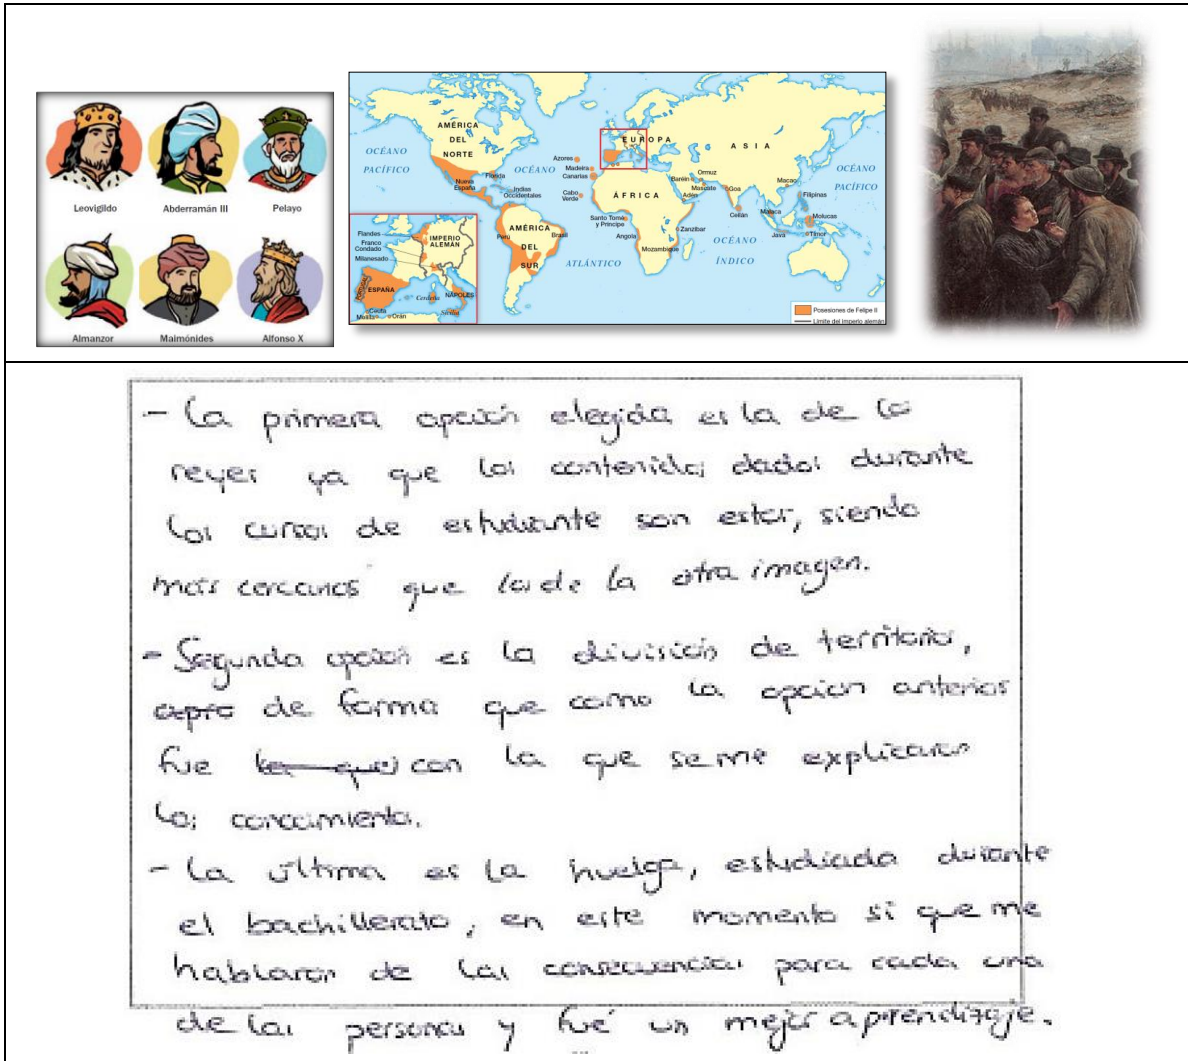 Leovigildo
Abderramán III
Pelayo
Almanzor
Maimónides
Alfonso X
AMÉRICA DEL NORTE
OCÉANO PACÍFICO
Nueva España
Florida
OCÉANO
Indias Occidentales
Azores
Madeira
Canarias
Cabo Verde
EUROPA
ASIA
ÁFRICA
Santo Tomé y Príncipe
Angola
Mozambique
Zanzibar
Baréin
Ormuz
Mascate
Adén
Goa
Ceilán
Macao
Malaca
Java
Filipinas
Molucas
Timor
OCÉANO PACÍFICO
OCÉANO ÍNDICO
AMÉRICA DEL SUR
Perú
Brasil
ATLÁNTICO
Flandes
Franco Condado
Milanesado
IMPERIO ALEMÁN
ESPAÑA
PORTUGAL
Cerdeña
NÁPOLES
Sicilia
Ceuta
Melilla
Orán
Posesiones de Felipe II
Límite del imperio alemán
- La primera opción elegida es la de los
reyes ya que los contenidos dados durante
los cursos de estudiante son estos, siendo
más cercanos que los de la otra imagen.
- Segunda opción es la división de territorios,
de forma que como la opcion anterior
fue con la que se me explicaron
los conocimientos.
- La última es la huelga, estudiada durante
el bachillerato, en este momento si que me
hablaron de las consecuencias para cada una
de las personas y fué un mejor aprendizaje.